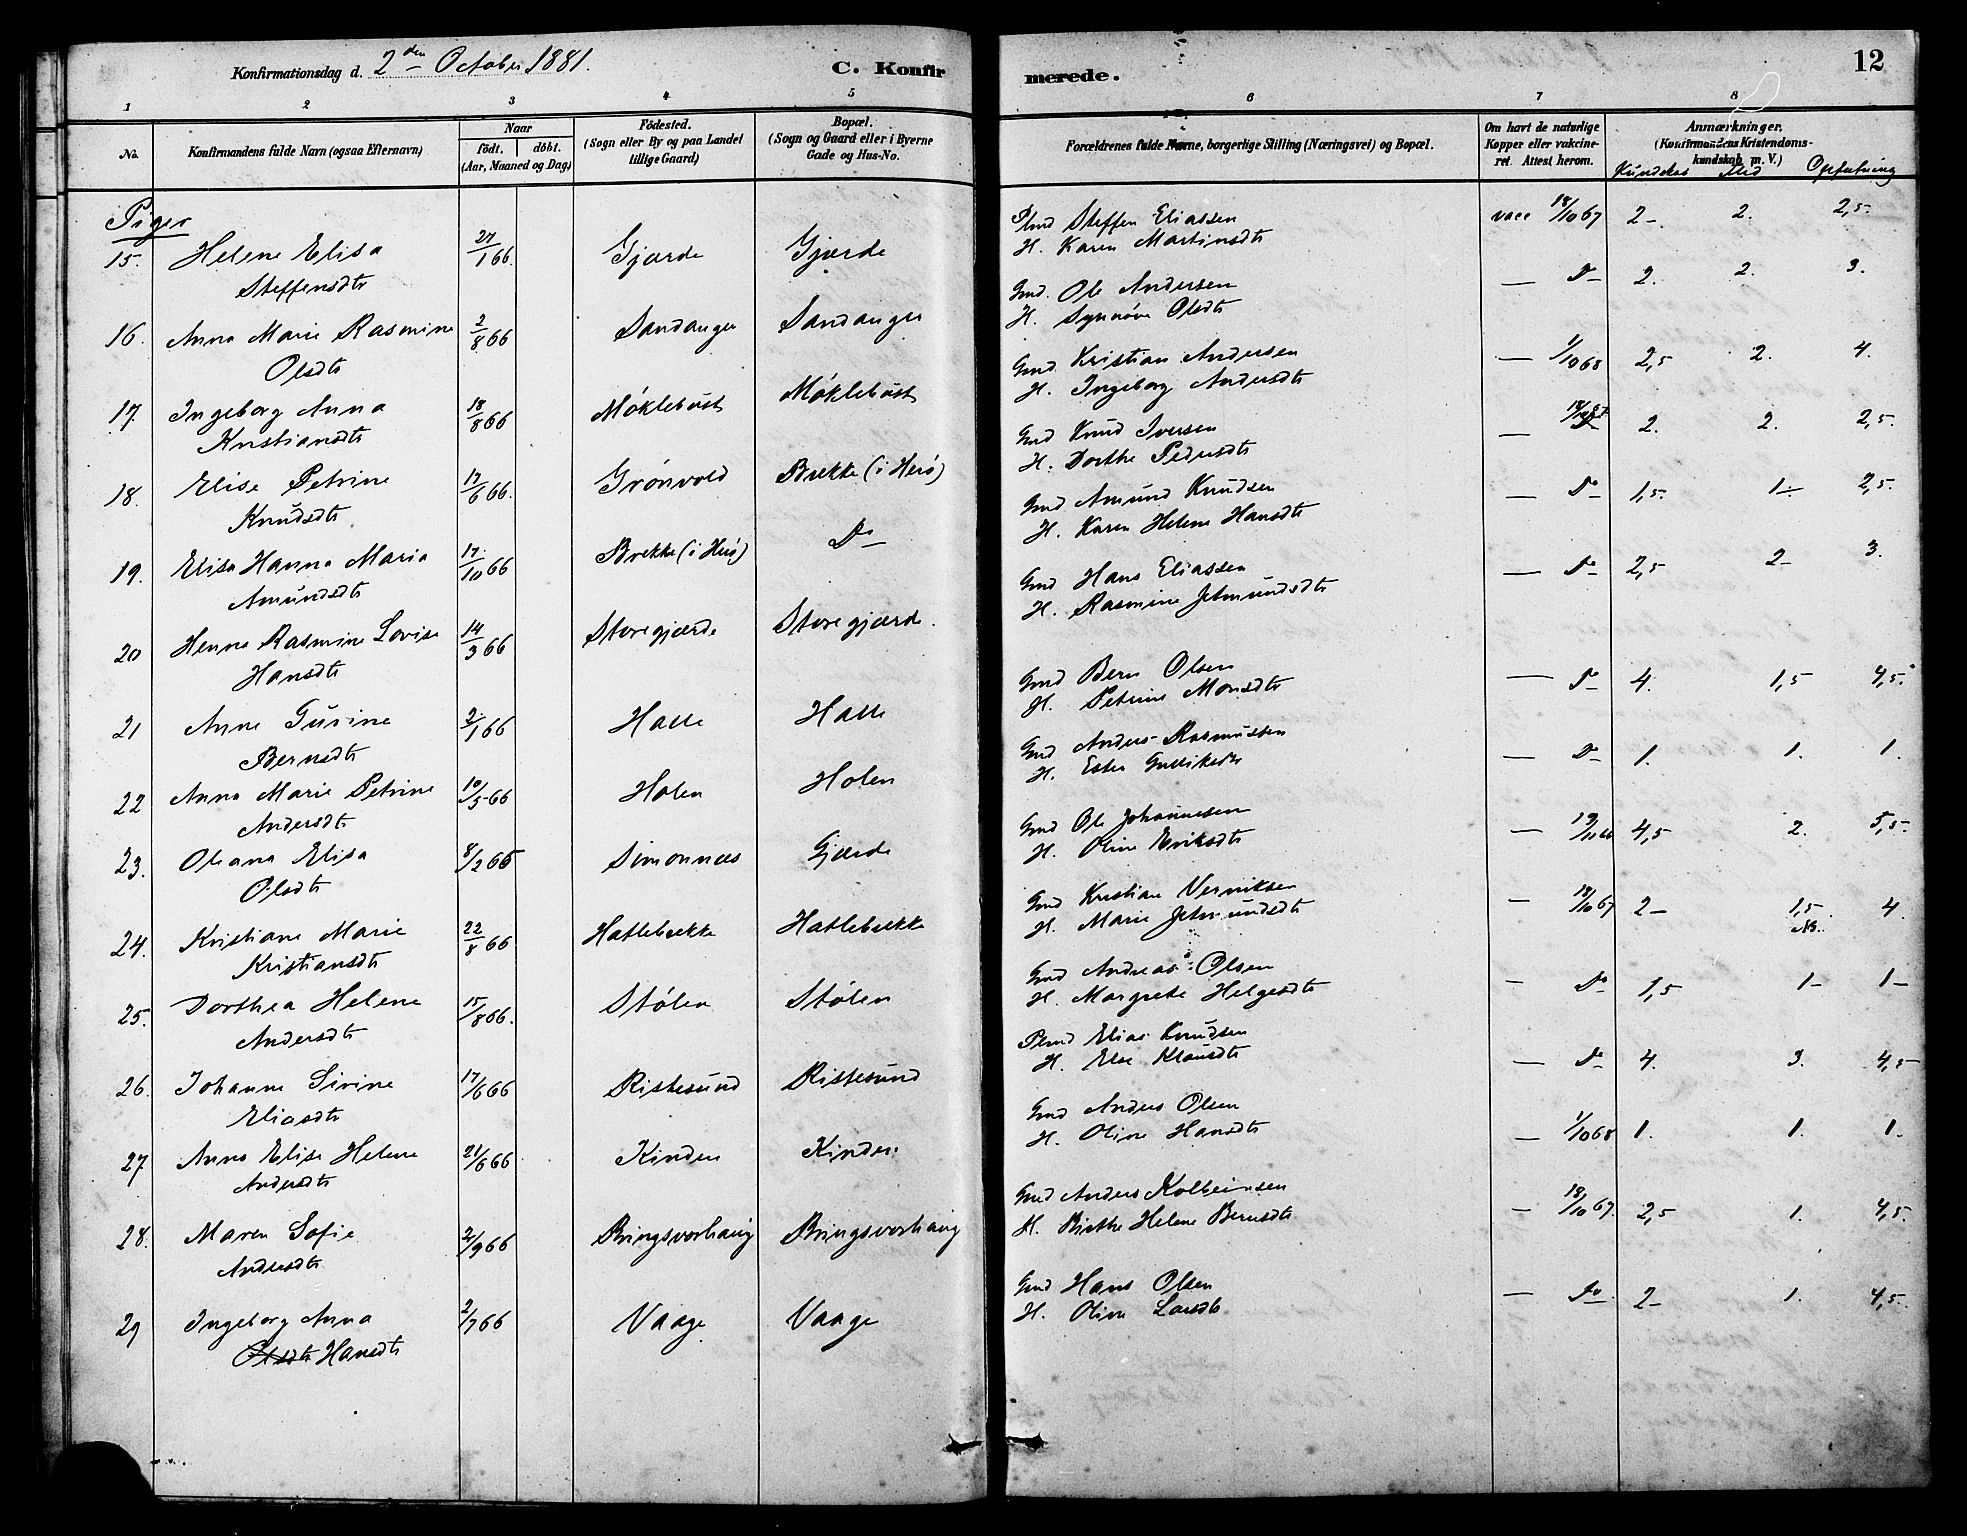 Konfirmationsdag d. 2den October 1881.
C. Konfirmerede.
12
1 2 3 4 5 6 7 8
No.
Konfirmandens fulde Navn (ogsaa Efternavn)
Naar
födt. döbt.
(Aar, Maaned og Dag)
Födested.
(Sogn eller By og paa Landet
tillige Gaard)
Bopæl.
(Sogn og Gaard eller i Byerne
Gade og Hus-No.
Forældrenes fulde Navne, borgerlige Stilling (Næringsvei) og Bopæl.
Om havt de naturlige
Kopper eller vakcine-
ret. Attest herom.
Anmærkninger.
(Konfirmandens Kristendoms-
kundskab m. V.)
Kundskab Flid Opfatning
Piger
15. Helene Elisa 27/1 66. Gjærde Gjærde
Steffensdtr
Plmd Steffen Eliassen vacc 18/10 67 2- 2. 2,5.
H. Karen Martinsdtr
16. Anna Marie Rasmine 2/8 66 Sandanger Sandanger
Olsdtr
Gmd. Ole Andersen — Do 2. 2. 3.
H. Synnöve Olsdtr
17. Ingeborg Anna 18/8 66 Möklebust Möklebust
Kristiansdtr
Gmd Kristian Andersen — 1/10 68 2,5 2. 4.
H. Ingeborg Andersdtr
18. Elise Petrine 17/6 66. Grönvold Brekke (i Herö)
Knudsdtr
Gmd Knud Iversen — 2. 2. 2,5.
H. Dorthe Pedersdtr
19. Elisa Hanna Maria 17/10 66 Brekke (i Herö) Do
Amundsdtr
Gmd Amund Knudsen — Do 1,5. 1- 2,5.
H. Karen Helene Hansdtr
20 Henna Rasmine Lovise 14/3 66 Storegjærde Storegjærde.
Hansdtr
Gmd Hans Eliassen — Do 2,5 2- 3.
H. Rasmine Jetmundsdtr
21 Anne Gurine 2/1 66 Halle Halle
Bernsdtr
Gmd Bern Olsen — Do 4. 1,5 4,5.
H. Petrine Monsdtr
22 Anna Marie Petrine 10/5 66 Holen Holen
Andersdtr
Gmd Anders Rasmussen — Do 1. 1. 1
H. Ester
23. Oleana Elisa 8/2 66 Simonnæs Gjærde
Olsdtr
Gmd Ole Johannesen — 4,5 2. 5,5.
H. Oline Eriksdtr
24. Kristiane Marie 22/8 66 Hatlebrekke Hatlebrekke
Kristiansdtr
Gmd Kristian Verniksen — 18/10 67 2- 1,5. 4.
H. Marie Jetmundsdtr
25. Dorthea Helene 15/8 66. Stölen Stölen
Andersdtr
Gmd Andreas Olsen — Do 1,5 1- 1-
H. Margrete Helgesdtr
26. Johanne Sirine 17/6 66 Ristesund Ristesund
Eliasdtr
Plmd Elias Knudsen — Do 4. 3. 4,5
H. Else Klausdtr
27 Anna Elise Helene 21/6 66 Kinden Kinden
Andersdtr
Gmd Anders Olsen — 1/10 68 1. 1. 1.
H. Oline Hansdtr
28. Maren Sofie 2/9 66 Bringsvorhaug Bringsvorhaug
Andersdtr
Gmd Anders Kolbeinsen — 18/10 67. 2,5 1. 4,5.
H. Birthe Helene Berntsdtr
29 Ingeborg Anna 2/7 66 Vaage Vaage
Olsdtr Hansdtr
Gmd Hans Olsen — Do 2- 1. 4,5.
H. Oline Larsdtr